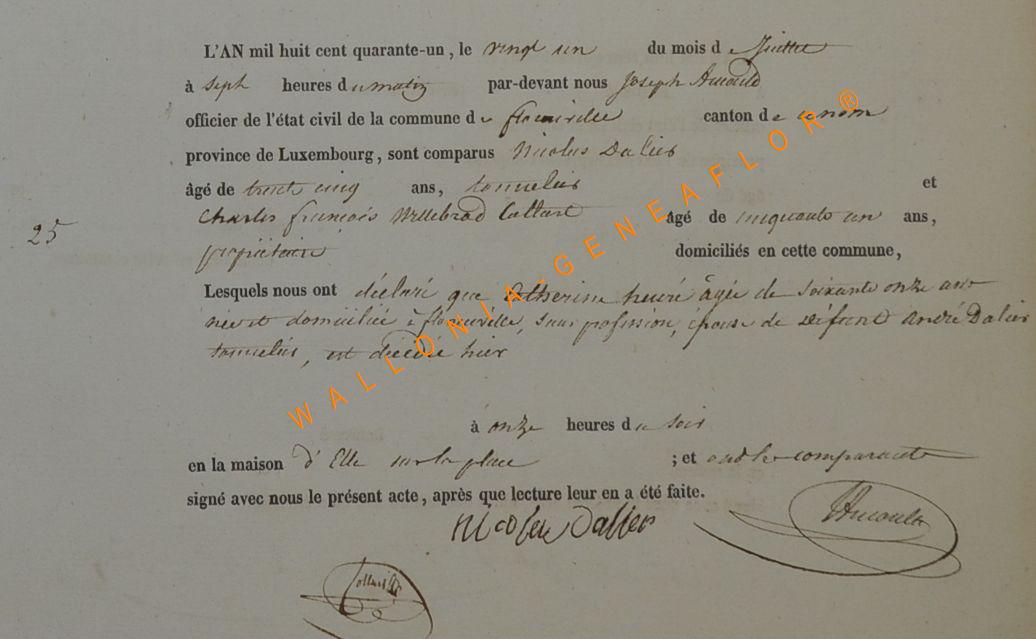 L'AN mil huit cent quarante-un, le vingt un du mois de Juillet
à sept heures du matin par-devant nous Joseph Arnould
officier de l'état civil de la commune de florenville canton de ce nom
province de Luxembourg, sont comparus Nicolas Dalier
âgé de trent cinq ans, tonnelier et
Charles françois Willebrod Collard âgé de cinquante un ans,
25
propriétaire domiciliés en cette commune,
Lesquels nous ont déclaré que Catherine henré âgée de soixante onze ans
née et domiciliée à florenville, sans profession, épouse de défunt André Dalier
tonnelier, est décédée hier
à onze heures du soir
en la maison d'Elle sur la place ; et ont les comparants
signé avec nous le présent acte, après que lecture leur en a été faite.
Nicolas Dalier Arnould
Collard
WALLONIA-GENEAFLOR ®